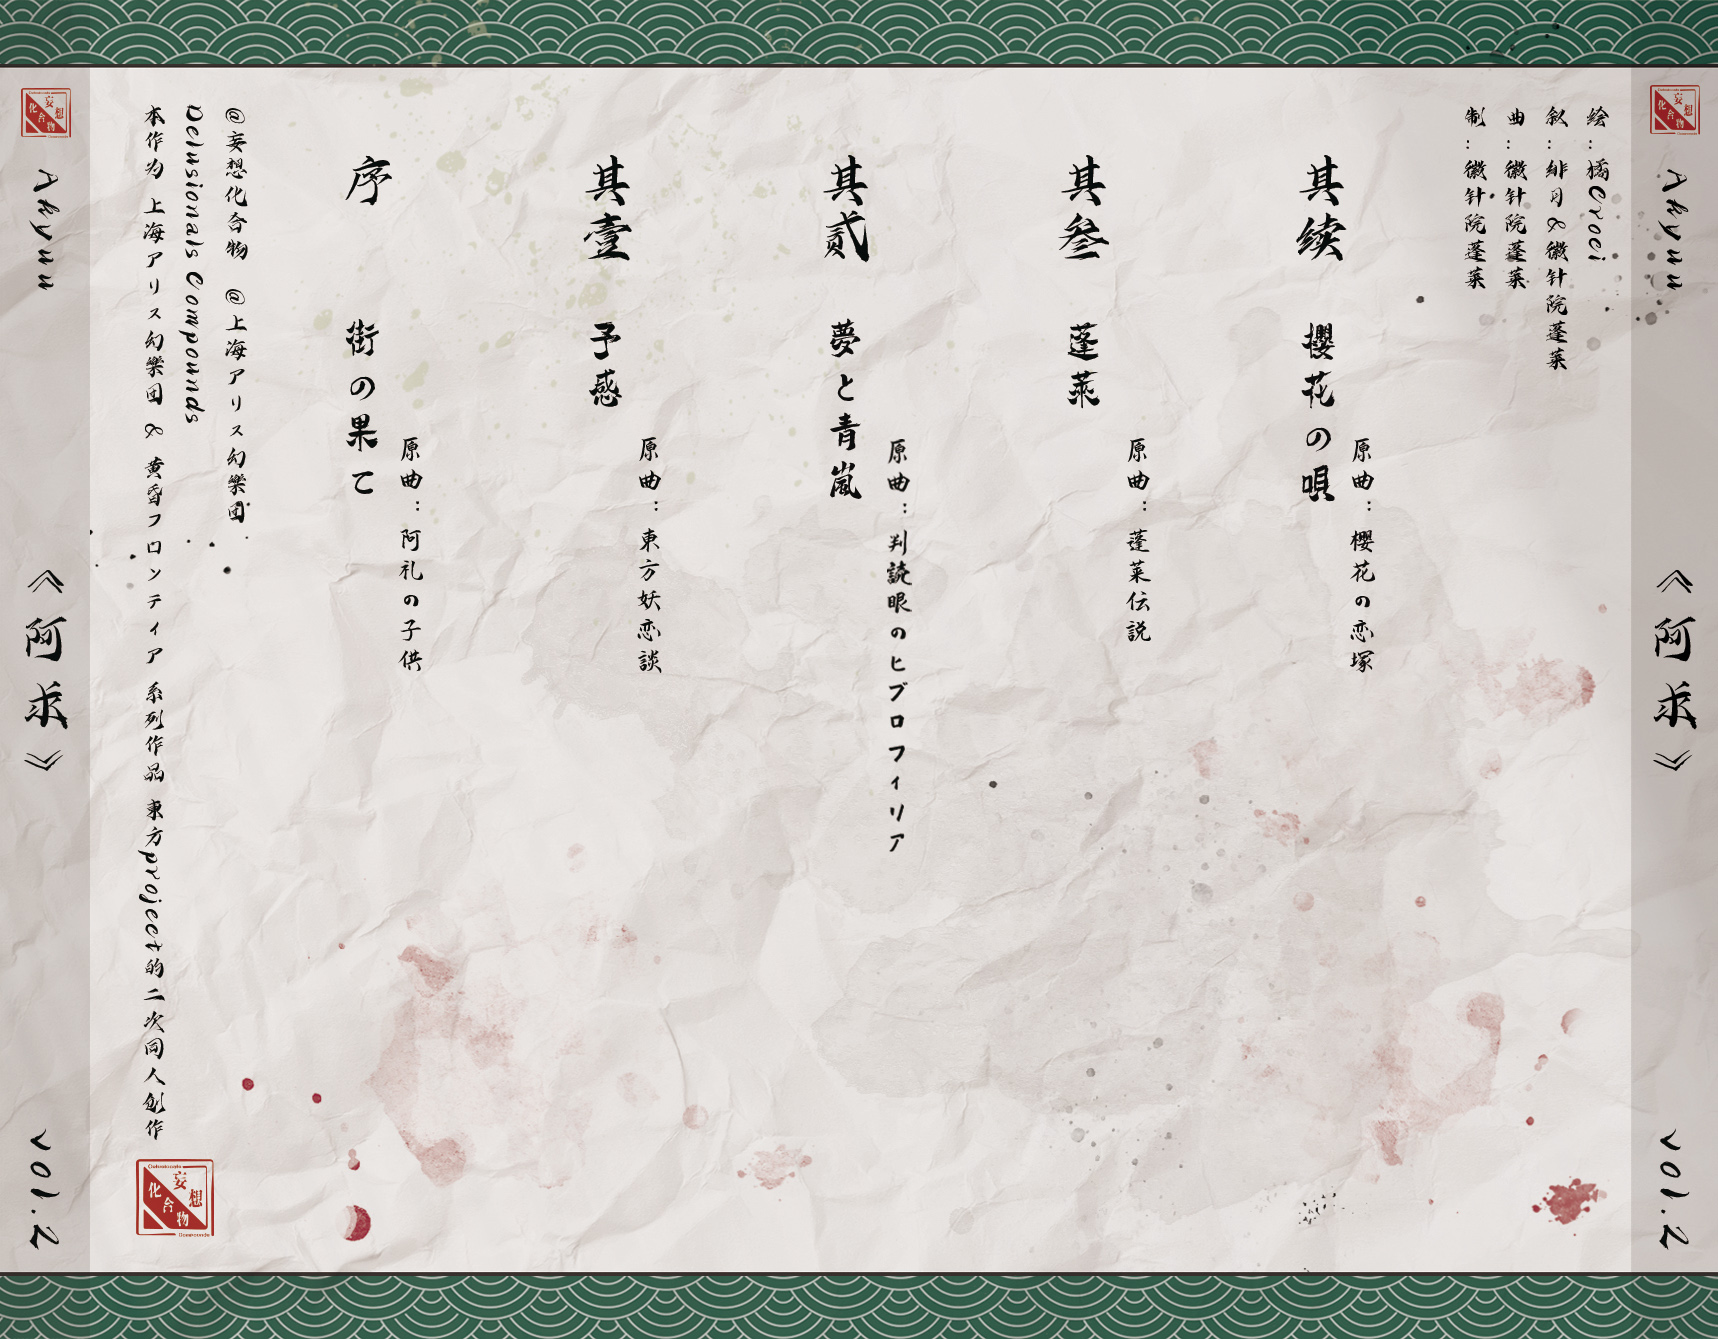 Akyuu
《阿求》
vol.2
絵：橘Croci
叙：绯月&徽针院蓬莱
曲：徽针院蓬莱
制：徽针院蓬莱
其续 櫻花の唄
原曲：櫻花の恋塚
其叁 蓬莱
原曲：蓬莱伝説
其貳 夢と青嵐
原曲：判読眼のヒブロフィリア
其壹 予感
原曲：東方妖恋談
序 街の果て
原曲：阿礼の子供
@妄想化合物 @上海アリス幻樂団
Delusionals Compounds
本作为 上海アリス幻樂団 & 黄昏フロンティア 系列作品 東方project的二次同人创作
妄想化合物
Akyuu
《阿求》
vol.2